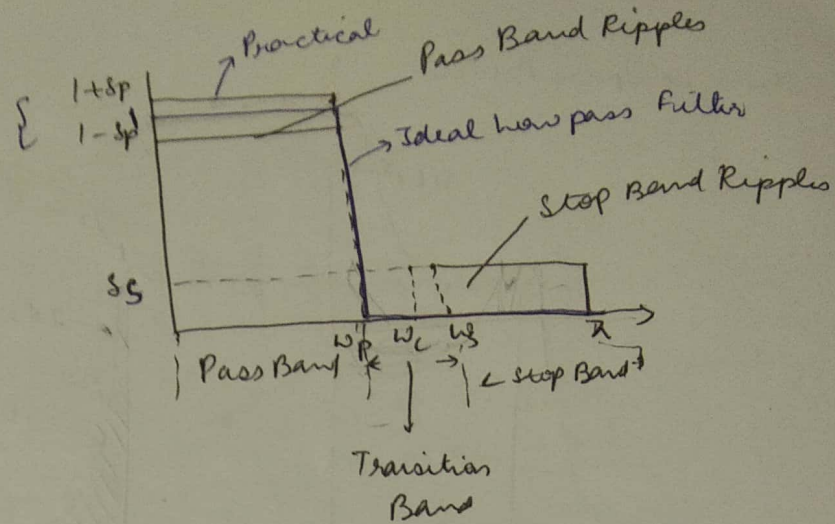 Practical
Pass Band Ripples
1+δp
1
1-δp
Ideal Low pass Filter
Stop Band Ripples
δs
ωp ωc ωs π
Pass Band
Stop Band
Transition
Band